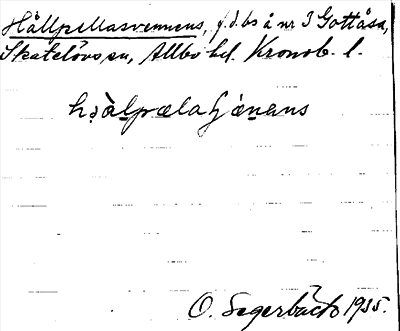 Hällpellasvennens, f.d. bs å nr 3 Gottåsa,
Skatelövs sn, Allbo hd. Kronob. l.
O. Segerbäck 1935.